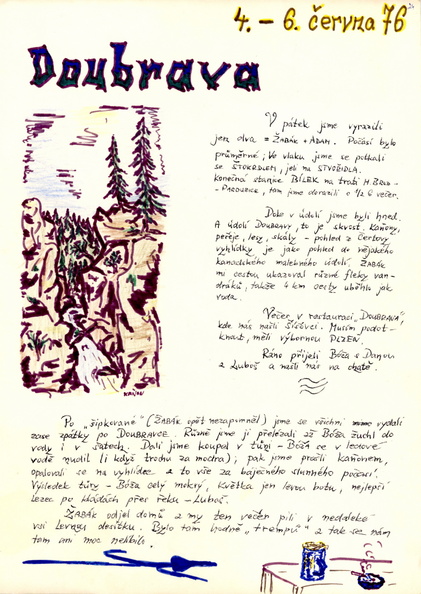 4. - 6. června 76
Doubrava
V pátek jsme vyrazili
jen dva = ŽABÁK + ADAM. Počasí bylo
průměrné; Ve vlaku jsme se potkali
se ŠTOKRDLEM, jel na STVOŘIDLA.
Konečná stanice BÍLEK na trati H. BROD -
- PARDUBICE, tam jsme dorazili o 1/2 6 večer.
Dole v údolí jsme byli hned.
A údolí DOUBRAVY, to je skvost. Kaňony,
peřeje, lesy, skály - pohled z Čertovy
vyhlídky je jako pohled do nějakého
kanadského malebného údolí. ŽABÁK
mi cestou ukazoval různé fleky van-
dráků, takže 4 km cesty uběhlo jak
voda.
Večer v restauraci „DOUBRAVA",
kde nás našli Musím podot-
knout, měli výbornou PLZEŇ.
Ráno přijeli Bóža s Danou
a Luboš a našli nás na chatě.
Po „šípkované" (ŽABÁK opět nezapomněl) jsme se všichni vydali
zase zpátky po DOUBRAVCE. Různě jsme jí přelézali až Bóža žuchl do
vody i v šatech. Dali jsme koupel v tůni - Bóža se v ledové
vodě nudil (i když trochu za modra); pak jsme prošli kaňonem,
opalovali se na vyhlídce a to vše za báječného slunného počasí.
Výsledek túry - Bóža celý mokrý, Květka jen levou botu, nejlepší
lezec po kládách přes řeku - Luboš.
ŽABÁK odjel domů a my ten večer pili v nedaleké
vsi Levnou desítku. Bylo tam hodně „trempů" a tak se nám
tam ani moc nelíbilo.